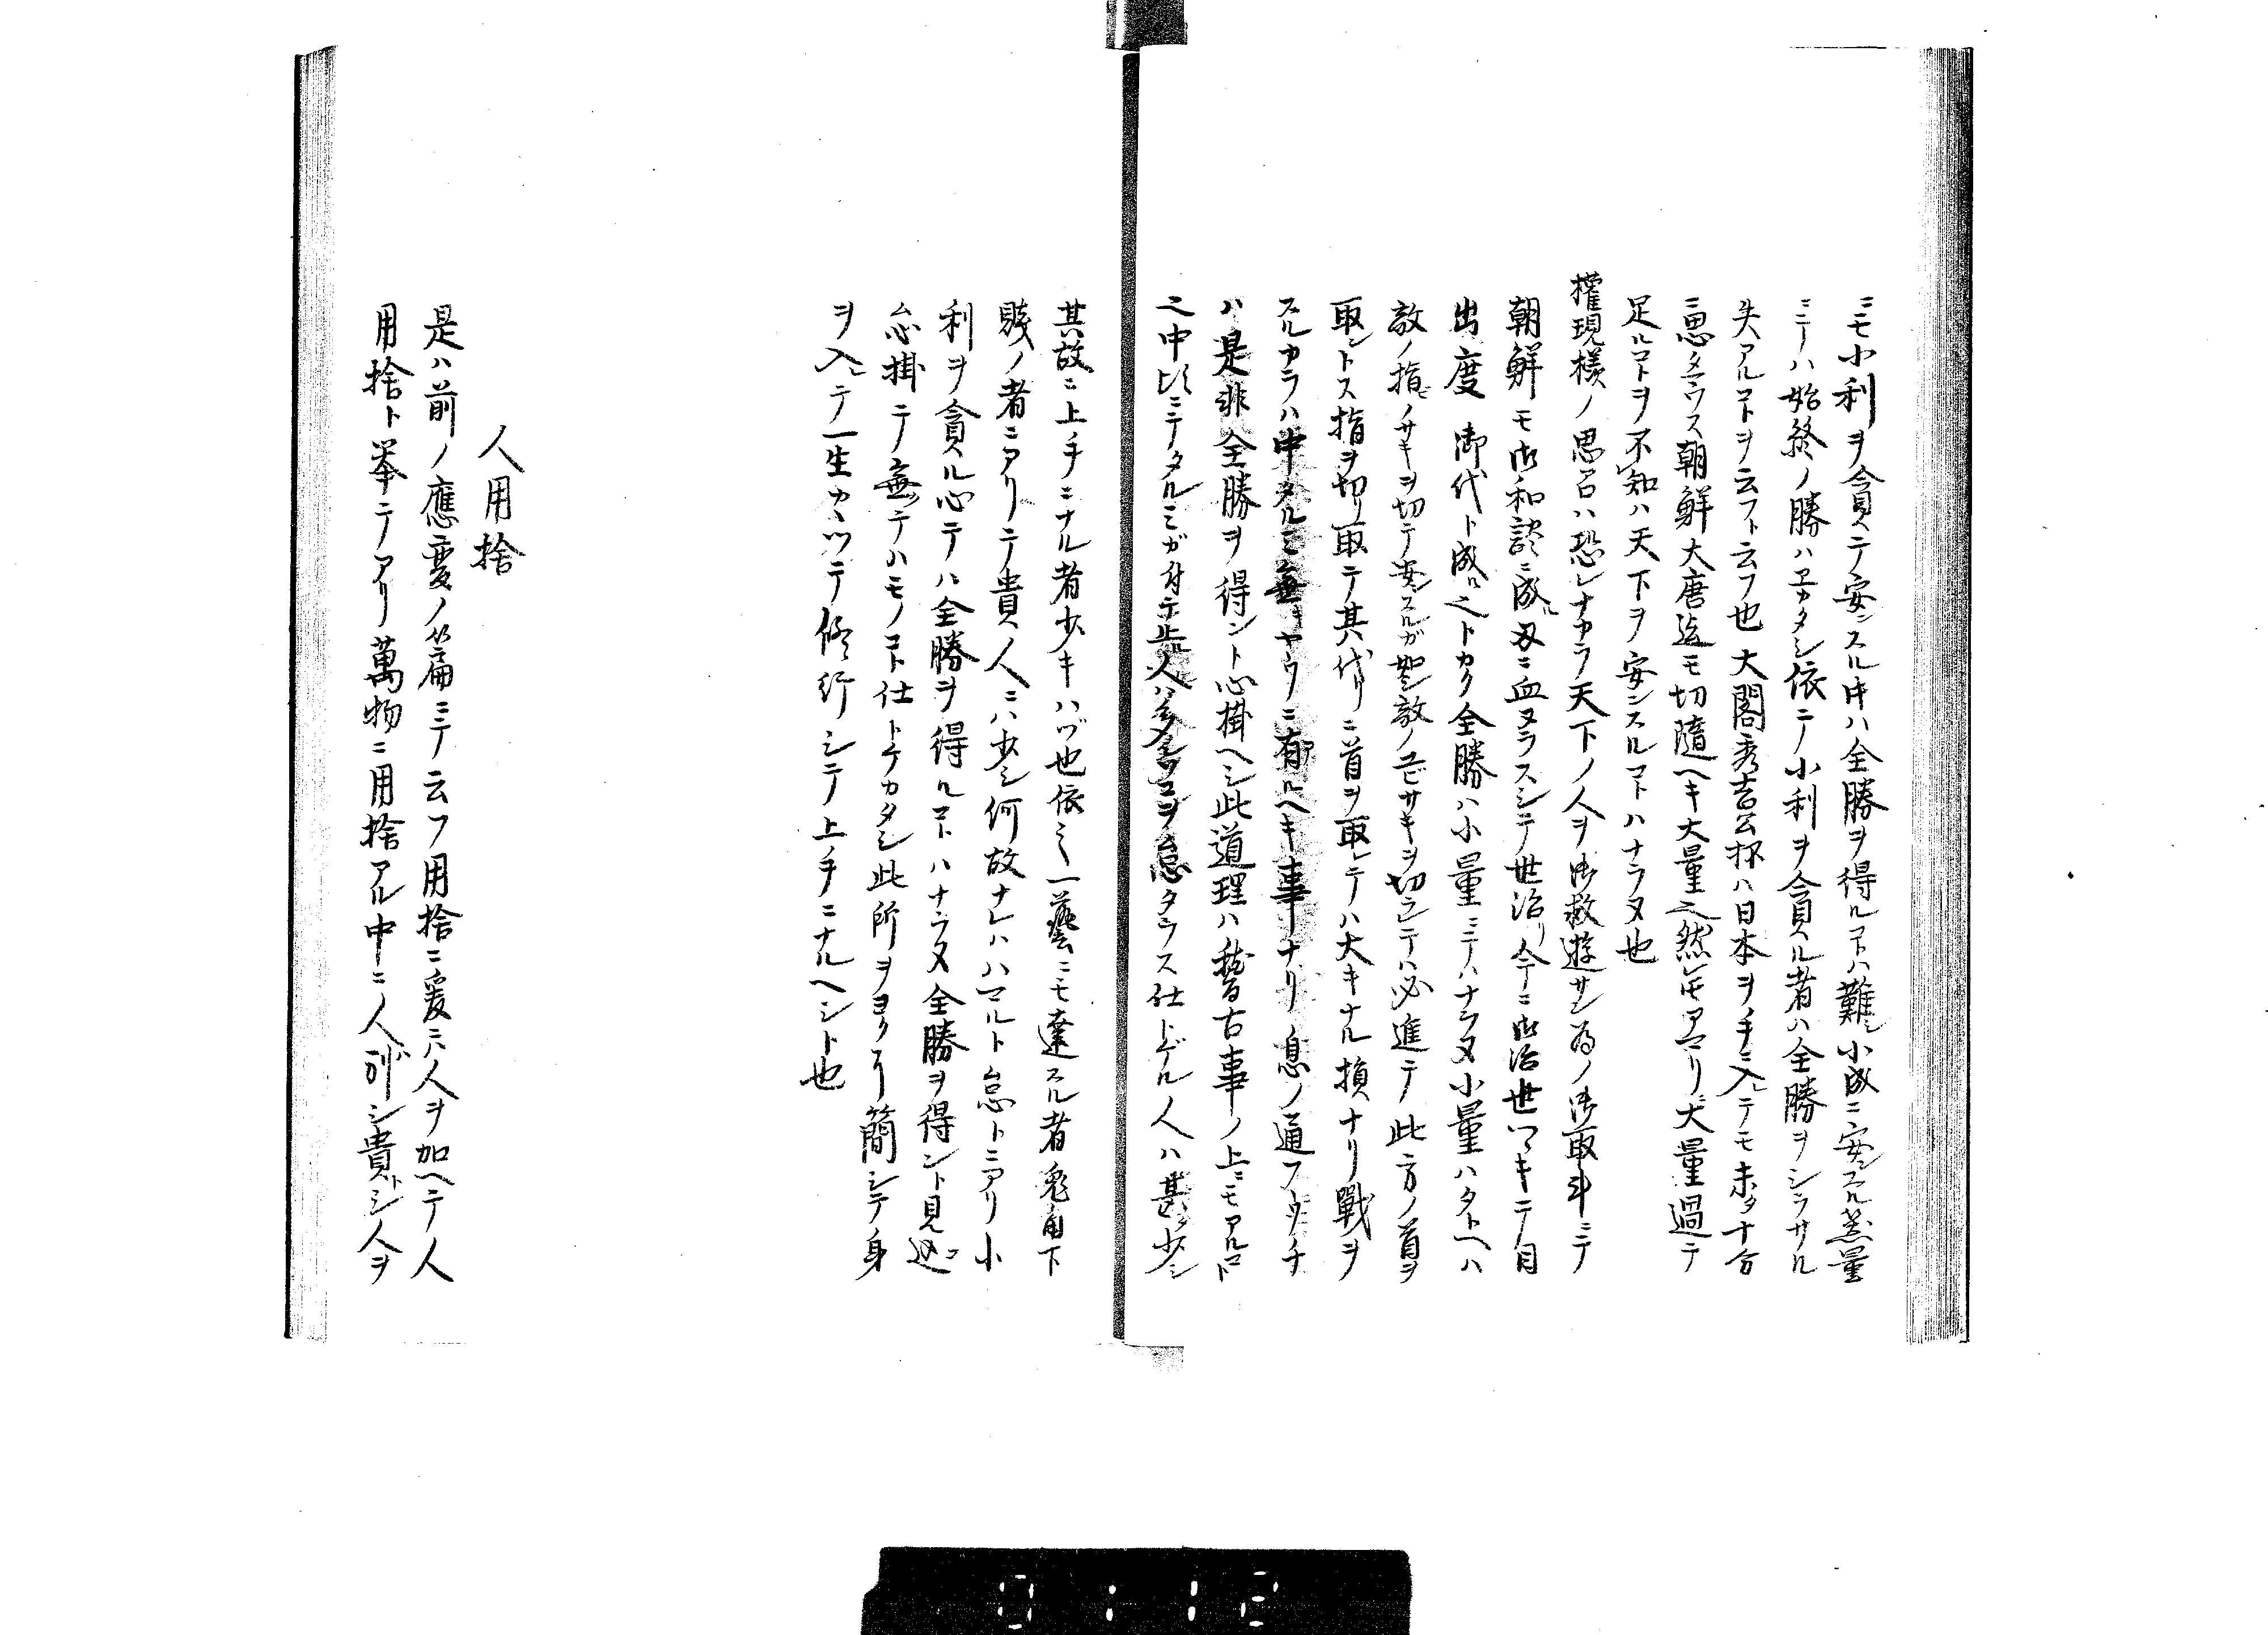 ニモ小利ヲ貪テ安ンスル㕝ハ全勝ヲ得ルヿハ難シ小成ニ安ンスル蒸量
ニテハ始終ノ勝ハヱカタシ依テ小利ヲ貪ル者ハ全勝ヲシラサル
失アルヿヲ云フト云フ也大閤秀吉公抔ハ日本ヲ手ニ入レテモ未タ十分
ニ思メサス朝鮮大唐迄モ切隨ヘキ大量也然レ𪜈アマリ大量過テ
足ルヿヲ不知ハ天下ヲ安ンスルヿハナラヌ也
權現様ノ思召ハ恐レナカラ天下ノ人ヲ御救遊サン為ノ御取斗ニテ
朝鮮モ御和談ニ成ル刄ニ血ヌラスシテ世治リ今ニ御治世ツヾキテ目
出度 御代ト成ル也トカク全勝ハ小量ニテハナラヌ小量ハタトヘハ
敵ノ指ノサキヲ切テ安ンスルガ如シ敵ノユビサキヲ切ラレテハ必進テ此方ノ首ヲ
取ントス指ヲ切リ取テ其代リニ首ヲ取レテハ大キナル損ナリ戰ヲ
スルカラハ中タルミ無キヤウニ有ルヘキ事ナリ息ノ通フウチ
ハ是非全勝ヲ得ント心掛ヘシ此道理ハ稽古事ノ上ニモアルヿ
也中比ニテタルミガ付テ止ル人ハ多シ
ヲ怠タラス仕トゲル人ハ甚少シ
其故ニ上手ニナル者少キハヅ也依之一藝ニモ達スル者兎角下
賤ノ者ニアリテ貴人ニハ少シ何故ナレハハマルト怠トニアリ小
利ヲ貪ル心テハ全勝ヲ得ルヿハナラヌ全勝ヲ得ント見込
心掛テ無テハモノヿ仕トケカタシ此所ヲヨク了簡シテ身
ヲ入レテ一生カヽツテ修行シテ上手ニナルヘシト也
人用捨
是ハ前ノ應変ノ篇ニテ云フ用捨ニ爰ニハ人ヲ加ヘテ人
用捨ト挙テアリ萬物ニ用捨アル中ニ人ガシ貴トシ人ヲ